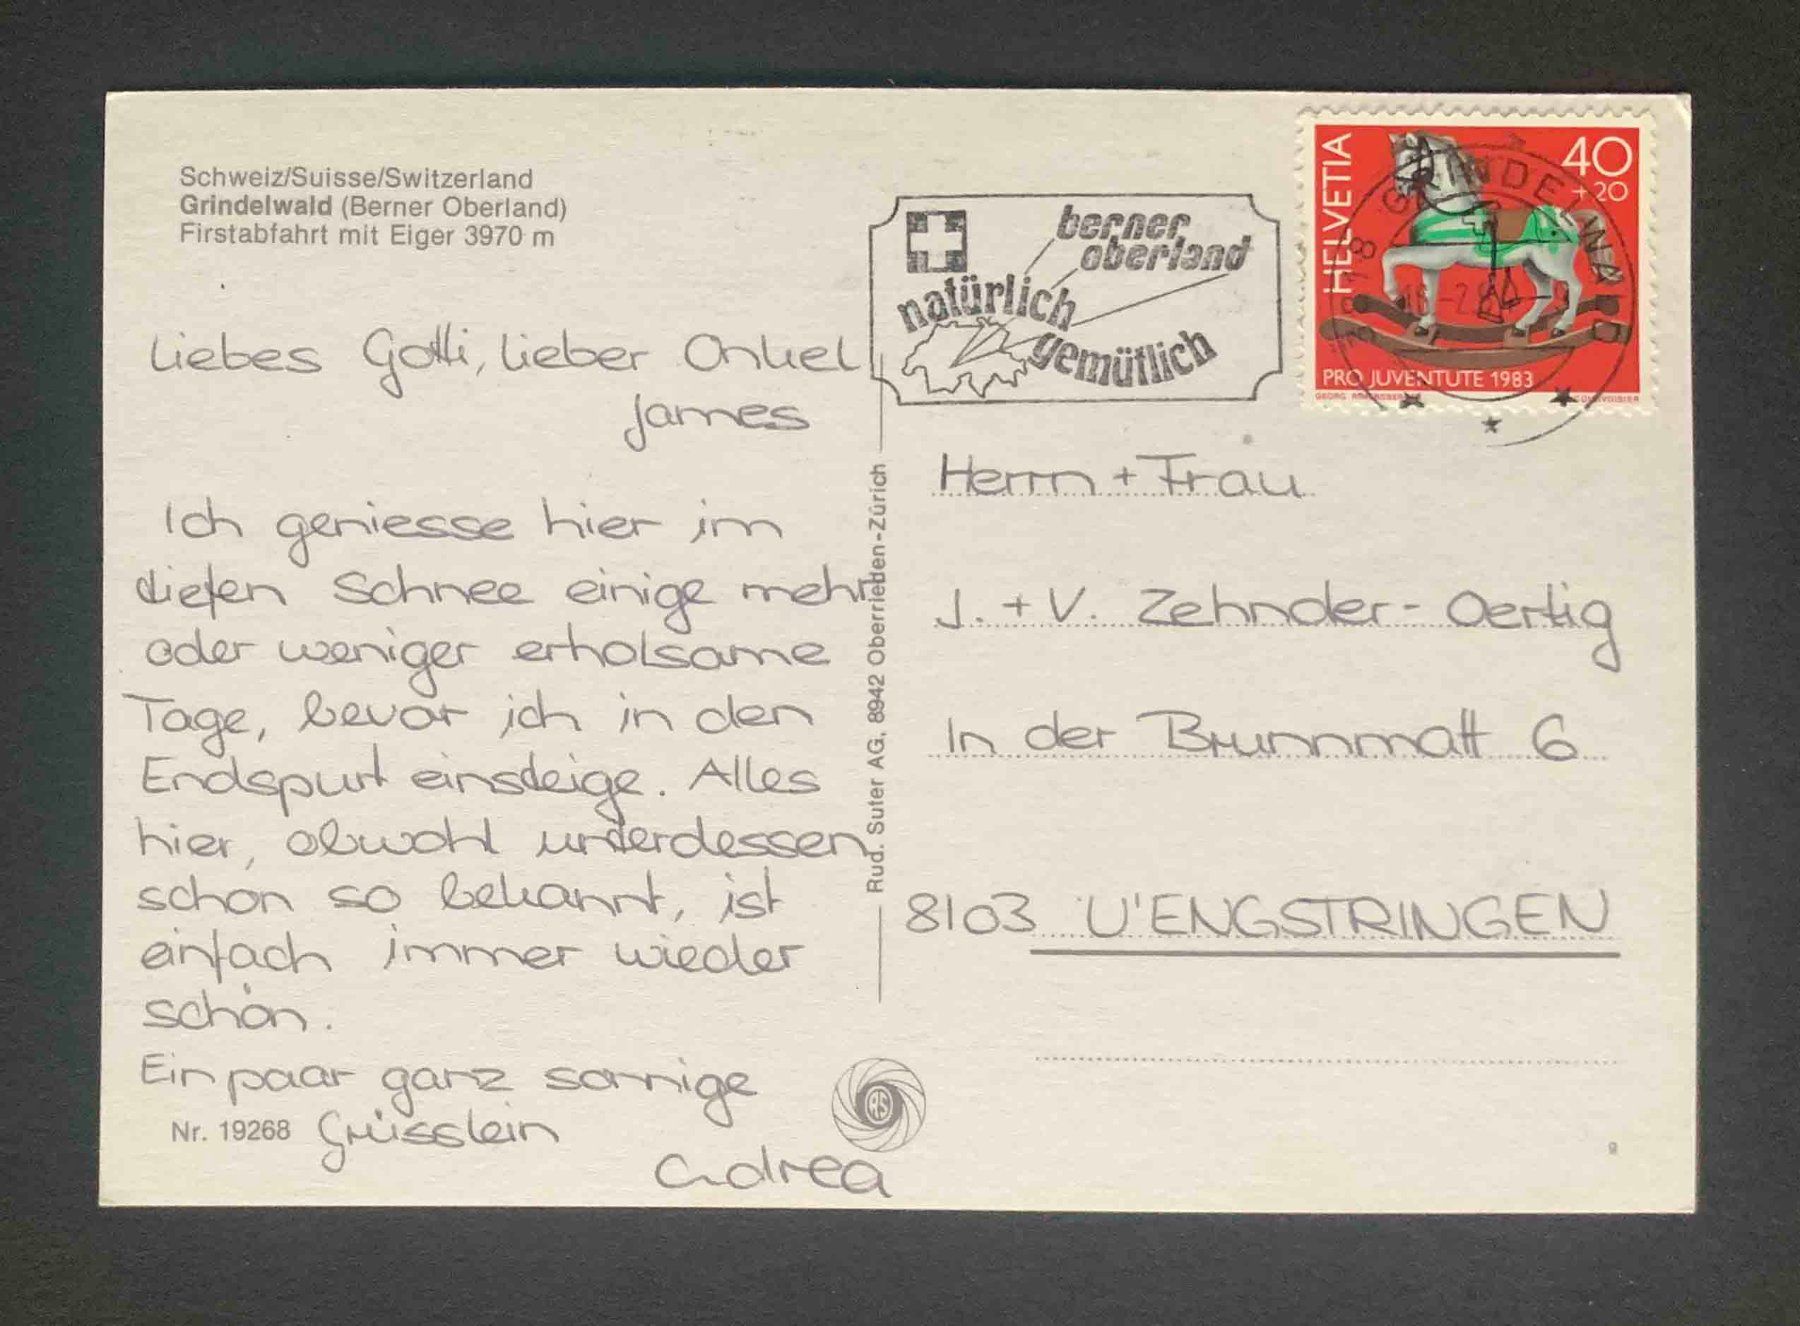 Schweiz/Suisse/Switzerland
Grindelwald (Berner Oberland)
Firstabfahrt mit Eiger 3970 m
Liebes Gotti, lieber Onkel
James
Ich geniesse hier im
tiefen Schnee einige mehr
oder weniger erholsame
Tage, bevor ich in den
Endspurt einsteige. Alles
hier, obwohl unterdessen
schon so bekannt, ist
einfach immer wieder
schön.
Ein paar ganz sonnige
Grüsslein
Andrea
Nr. 19268
Rud. Suter AG, 8942 Oberrieden-Zürich
RS
berner
oberland
natürlich
gemütlich
HELVETIA
40
+20
PRO JUVENTUTE 1983
GRINDELWALD
Herrn + Frau
J. + V. Zehnder-Oertig
In der Brunnmatt 6
8103 U'ENGSTRINGEN